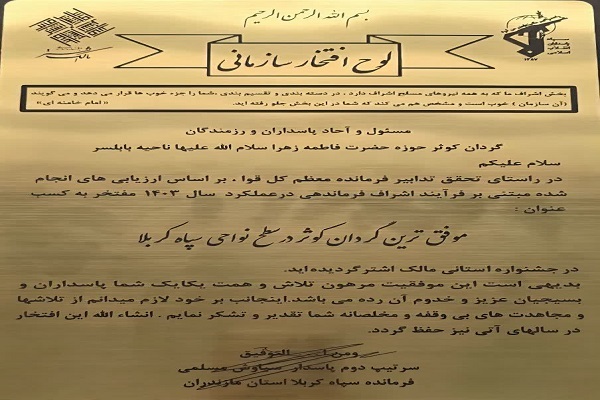 بسم الله الرحمن الرحیم
لوح افتخار سازمانی
سپاه
پاسداران
انقلاب
اسلامی
بخش اشراف ما که به همه نیروهای مسلح اشراف دارد ، در دسته بندی و تقسیم بندی ،شما را جزء خوب ها قرار می دهد و می گویند
(آن سازمان ) خوب است و مشخص هم می کند که شما در این بخش جلو رفته اید. « امام خامنه ای »
مسئول و آحاد پاسداران و رزمندگان
گردان کوثر حوزه حضرت فاطمه زهرا سلام الله علیها ناحیه بابلسر
سلام علیکم
در راستای تحقق تدابیر فرمانده معظم کل قوا ، بر اساس ارزیابی های انجام
شده مبتنی بر فرآیند اشراف فرماندهی درعملکرد سال ۱۴۰۳ مفتخر به کسب
عنوان :
موفق ترین گردان کوثر در سطح نواحی سپاه کربلا
در جشنواره استانی مالک اشتر گردیده اید.
بدیهی است این موفقیت مرهون تلاش و همت یکایک شما پاسداران و
بسیجیان عزیز و خدوم آن رده می باشد.اینجانب بر خود لازم میدانم از تلاشها
و مجاهدت های بی وقفه و مخلصانه شما تقدیر و تشکر نمایم . انشاء الله این افتخار
در سالهای آتی نیز حفظ گردد.
ومن التوفیق
سرتیپ دوم پاسدار سیاوش مسلمی
فرمانده سپاه کربلا استان مازندران